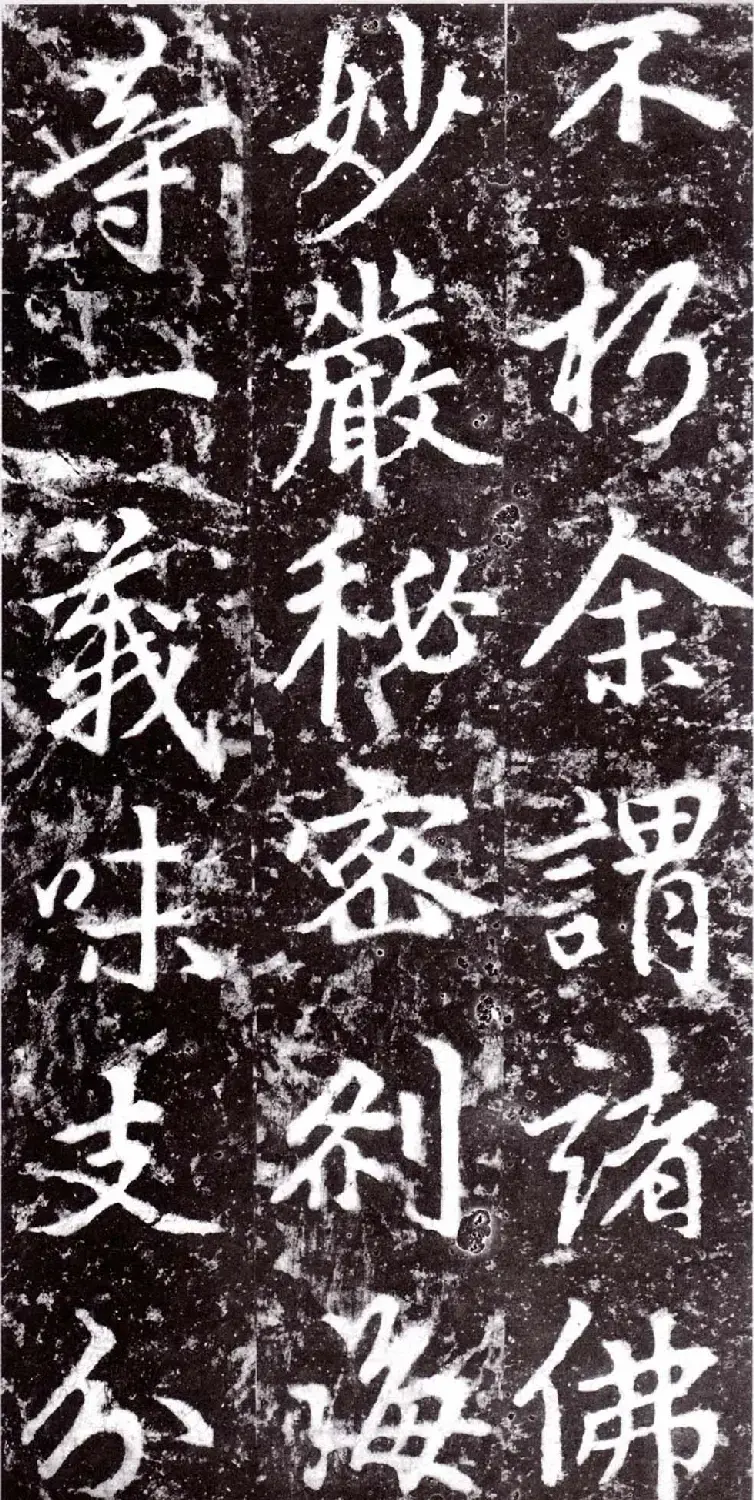 不朽余謂諸佛
妙嚴秘密刹海
等一義味支分